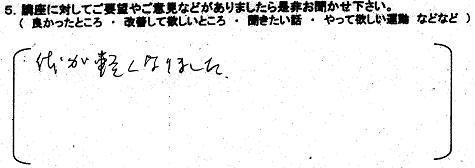 5. 講座に対してご要望やご意見などがありましたら是非お聞かせ下さい。
( 良かったところ ・ 改善して欲しいところ ・ 聞きたい話 ・ やって欲しい運動 などなど )
体が軽くなりました。